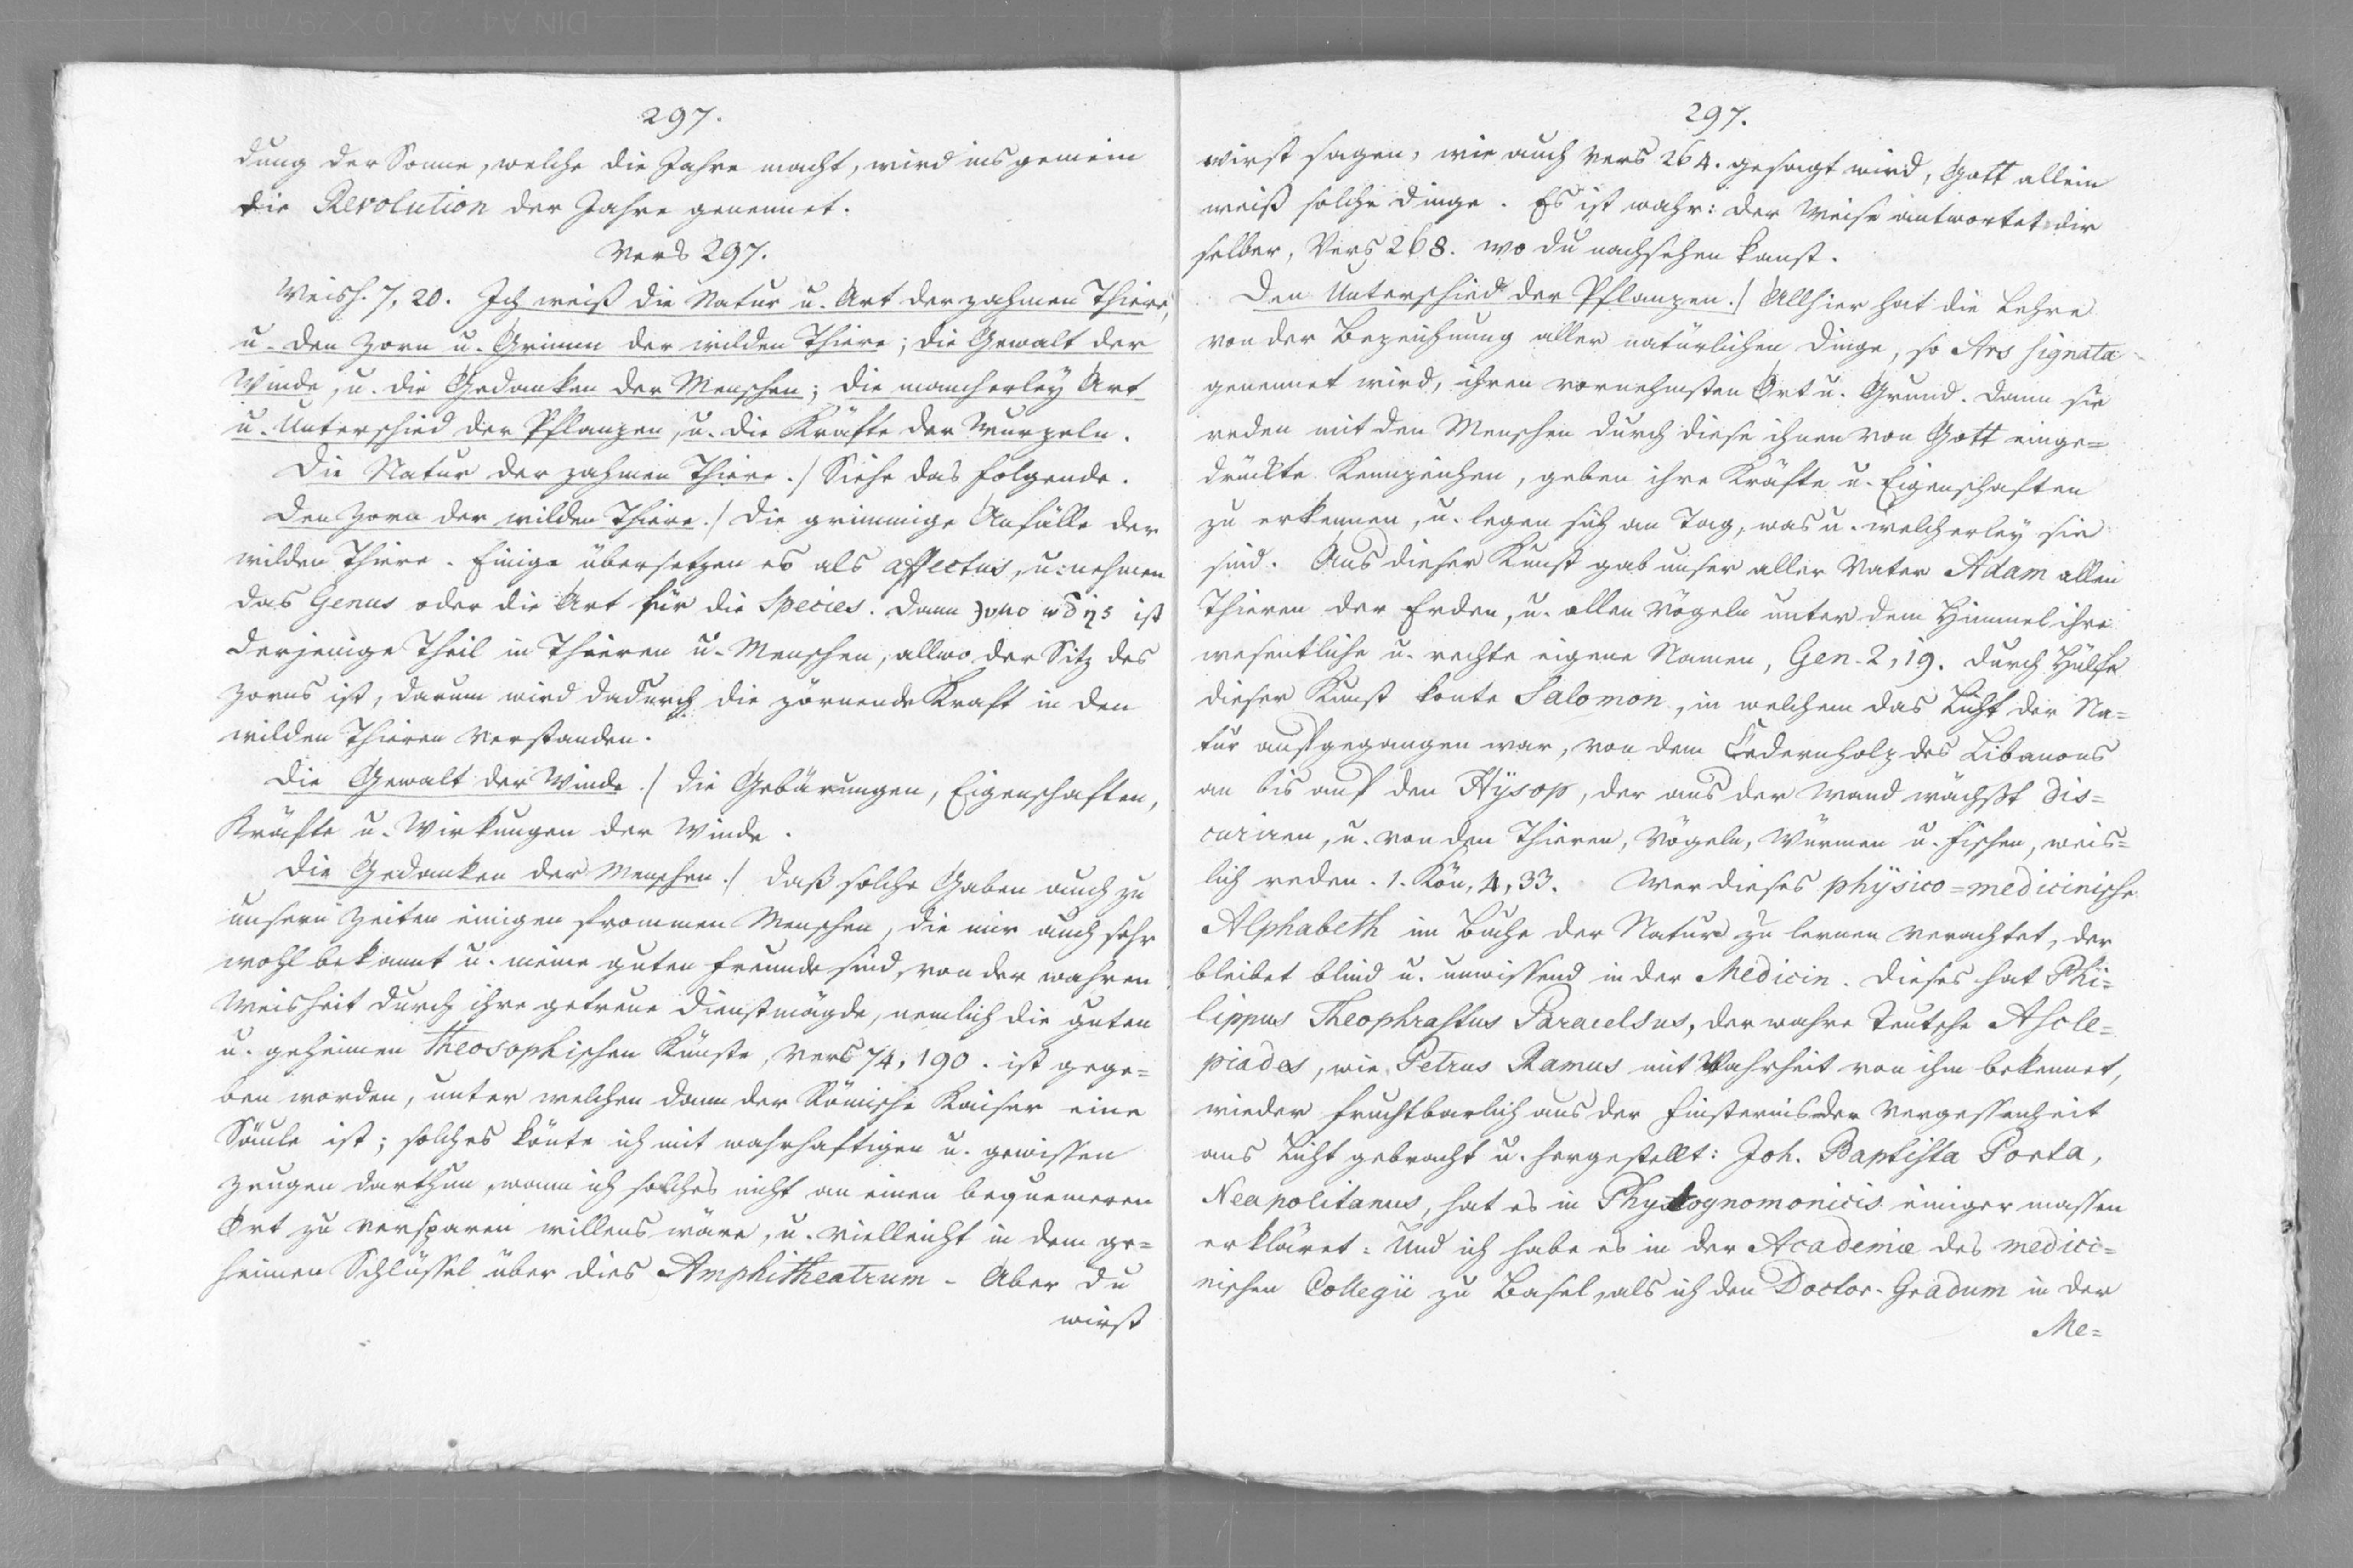 297.
dung der Sonne, welche die Jahre macht, wird ins gemein
die Revolution der Jahre genennet.
Vers 297.
Weish. 7, 20. Ich weiß die Natur u. Art der zahmen Thiere,
u. den Zorn u. Grimm der wilden Thiere; die Gewalt der
Winde, u. die Gedanken der Menschen; die mancherley Art
u. Unterschied der Pflanzen, u. die Kräfte der Wurzeln.
Die Natur der zahmen Thiere./ Siehe das folgende.
Den Zorn der wilden Thiere./ Die grimmige Anfälle der
wilden Thiere. Einige übersetzen es als affectus, u. nehmen
das Genus oder die Art für die Species. Dann ist
derjenige Theil in Thieren u. Menschen, allwo der Sitz des
Zorns ist, darum wird dadurch die zörnende Kraft in den
wilden Thieren verstanden.
Die Gewalt der Winde./ Die Gebärungen, Eigenschaften,
Kräfte u. Wirkungen der Winde.
Die Gedanken der Menschen./ Daß solche Gaben auch zu
unsern Zeiten einigen frommen Menschen, die mir auch sehr
wohl bekannt u. meine guten Freunde sind, von der wahren
Weisheit durch ihre getreue Dienstmägde, nemlich die guten
u. geheimen Theosophischen Künste, Vers 74, 190. ist gege=
ben worden, unter welchen dann der Römische Kaiser eine
Säule ist; solches könte ich mit wahrhaftigen u. gewissen
Zeugen darthun, wann ich solches nicht an einen bequemeren
Ort zu versparen willens wäre, u. vielleicht in dem ge=
heimen Schlüssel über dies Amphitheatrum - Aber du
wirst
297.
wirst sagen, wie auch Vers 264. gesagt wird, Gott allein
weiß solche Dinge. Es ist wahr: der Weise antwortet dir
selber, Vers 268. wo du nachsehen kanst.
Den Unterschied der Pflanzen./ Allhier hat die Lehre
von der Bezeichnung aller natürlichen Dinge, so Ars signata
genennet wird, ihren vornehmsten Ort u. Grund. Dann sie
reden mit den Menschen durch diese ihnen von Gott einge=
drückte Kennzeichen, geben ihre Kräfte u. Eigenschaften
zu erkennen, u. legen sich an Tag, was u. welcherley sie
sind. Aus dieser Kunst gab unser aller Vater Adam allen
Thieren der Erden, u. allen Vögeln unter dem Himmel ihre
wesentliche u. rechte eigene Namen, Gen. 2, 19. Durch Hülfe
dieser Kunst konte Salomon, in welchem das Licht der Na=
tur aufgegangen war, von dem Cedernholz des Libanons
an bis auf den Hysop, der aus der Wand wächßt dis=
curiren, u. von den Thieren, Vögeln, Würmen u. Fischen, weis=
lich reden. 1. Kön, 4, 33. Wer dieses physico=medicinische
Alphabeth im Buche der Natur zu lernen verachtet, der
bleibet blind u. unwissend in der Medicin. Dieses hat Phi=
lippus Theophrastus Paracelsus, der wahre Teutsche Ascle=
piades, wie Petrus Ramus mit Wahrheit von ihm bekennet,
wieder fruchtbarlich aus der Finsternis der Vergessenheit
ans Licht gebracht u. hergestellt: Joh. Baptista Porta,
Neapolitanus, hat es in Phytognomonicis einiger massen
erkläret: Und ich habe es in der Academie des medici=
nischen Collegii zu Basel, als ich den Doctor-Gradum in der
Me=